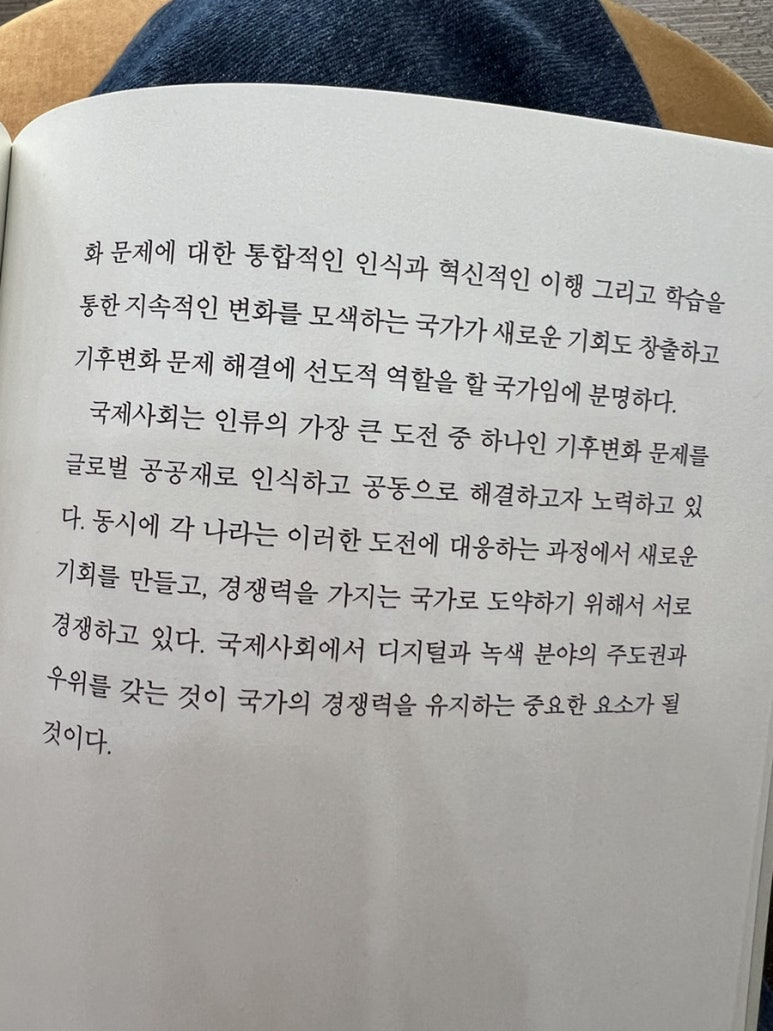 화 문제에 대한 통합적인 인식과 혁신적인 이행 그리고 학습을
통한 지속적인 변화를 모색하는 국가가 새로운 기회도 창출하고
기후변화 문제 해결에 선도적 역할을 할 국가임에 분명하다.
국제사회는 인류의 가장 큰 도전 중 하나인 기후변화 문제를
글로벌 공공재로 인식하고 공동으로 해결하고자 노력하고 있
다. 동시에 각 나라는 이러한 도전에 대응하는 과정에서 새로운
기회를 만들고, 경쟁력을 가지는 국가로 도약하기 위해서 서로
경쟁하고 있다. 국제사회에서 디지털과 녹색 분야의 주도권과
우위를 갖는 것이 국가의 경쟁력을 유지하는 중요한 요소가 될
것이다.